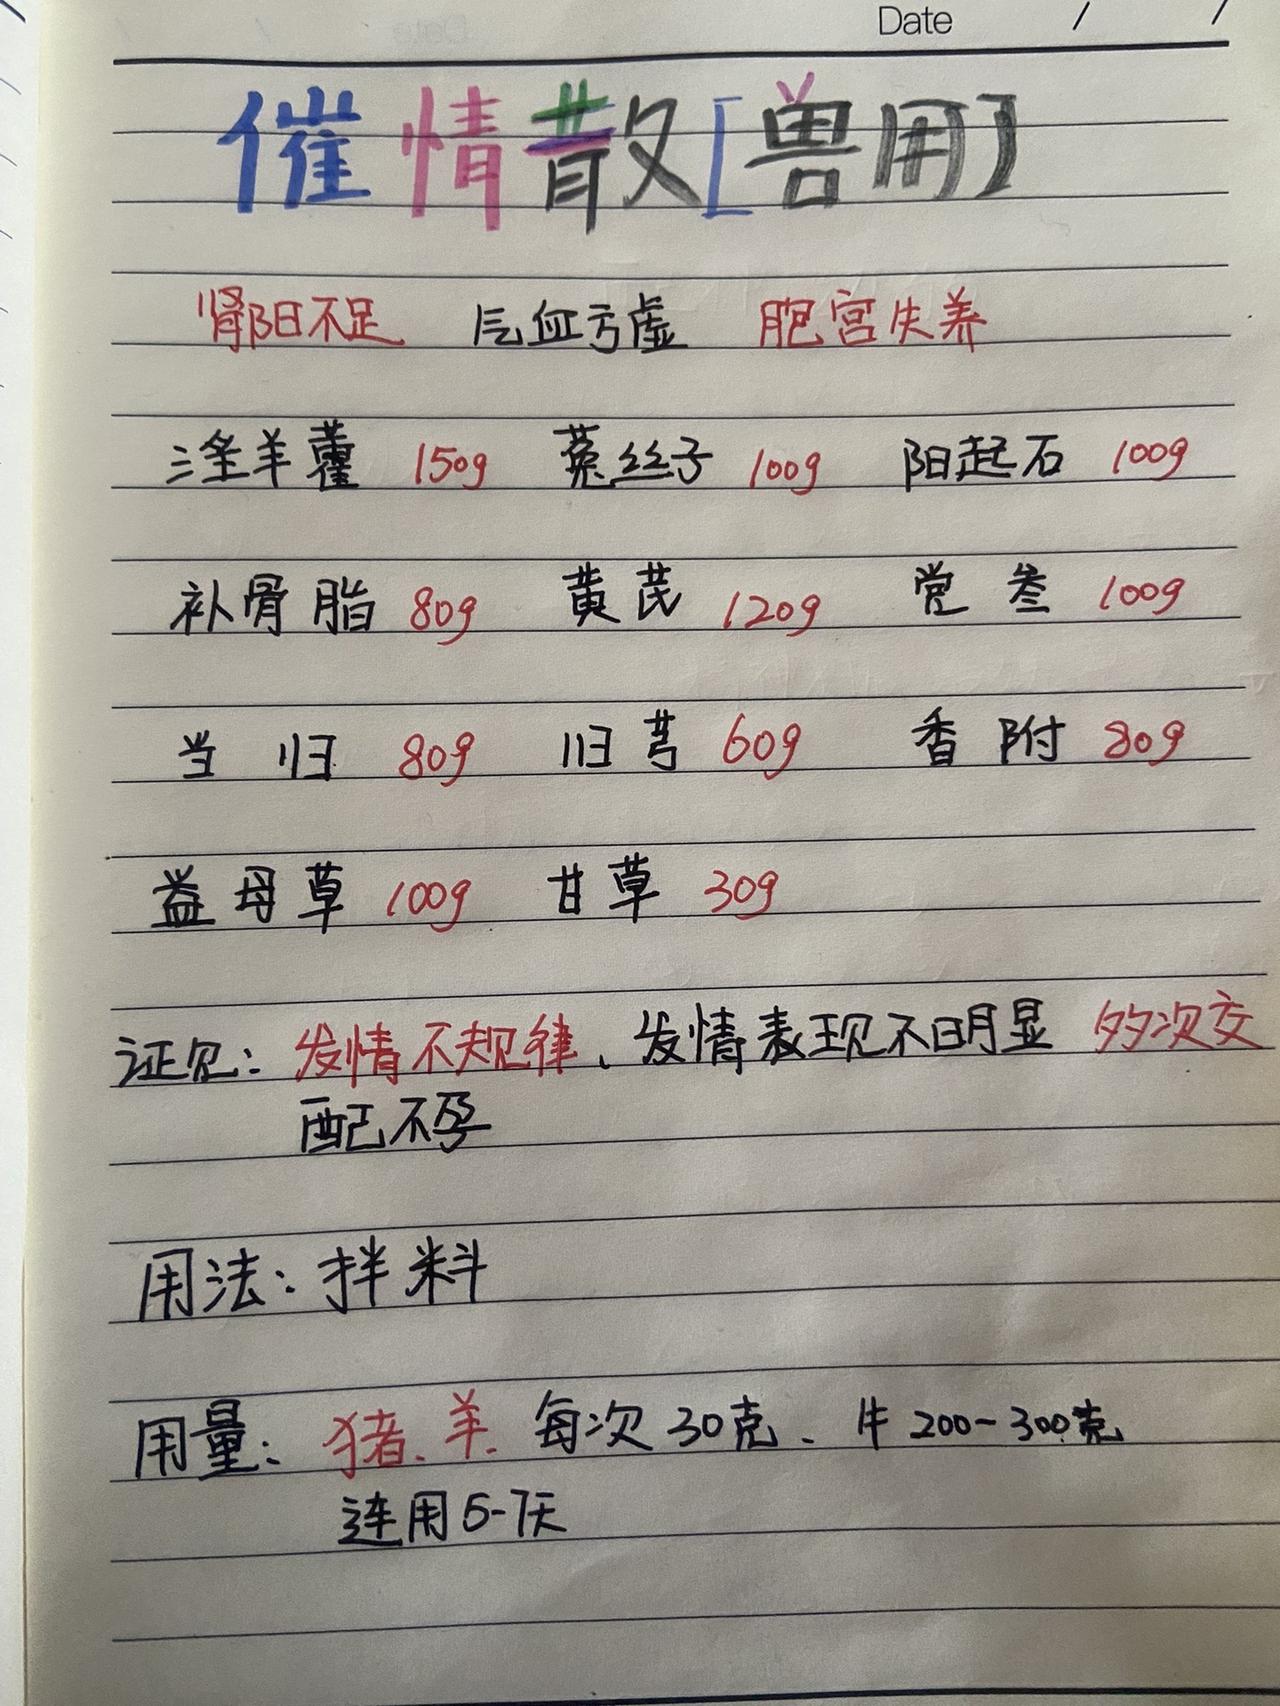 Date / /
催情散[兽用]
肾阳不足 气血亏虚 胞宫失养
淫羊藿 150g 菟丝子 100g 阳起石 100g
补骨脂 80g 黄芪 120g 党参 100g
当归 80g 川芎 60g 香附 80g
益母草 100g 甘草 30g
证见：发情不规律、发情表现不明显 多次交
配不孕
用法：拌料
用量：猪、羊、每次30克、牛200-300克
连用5-7天